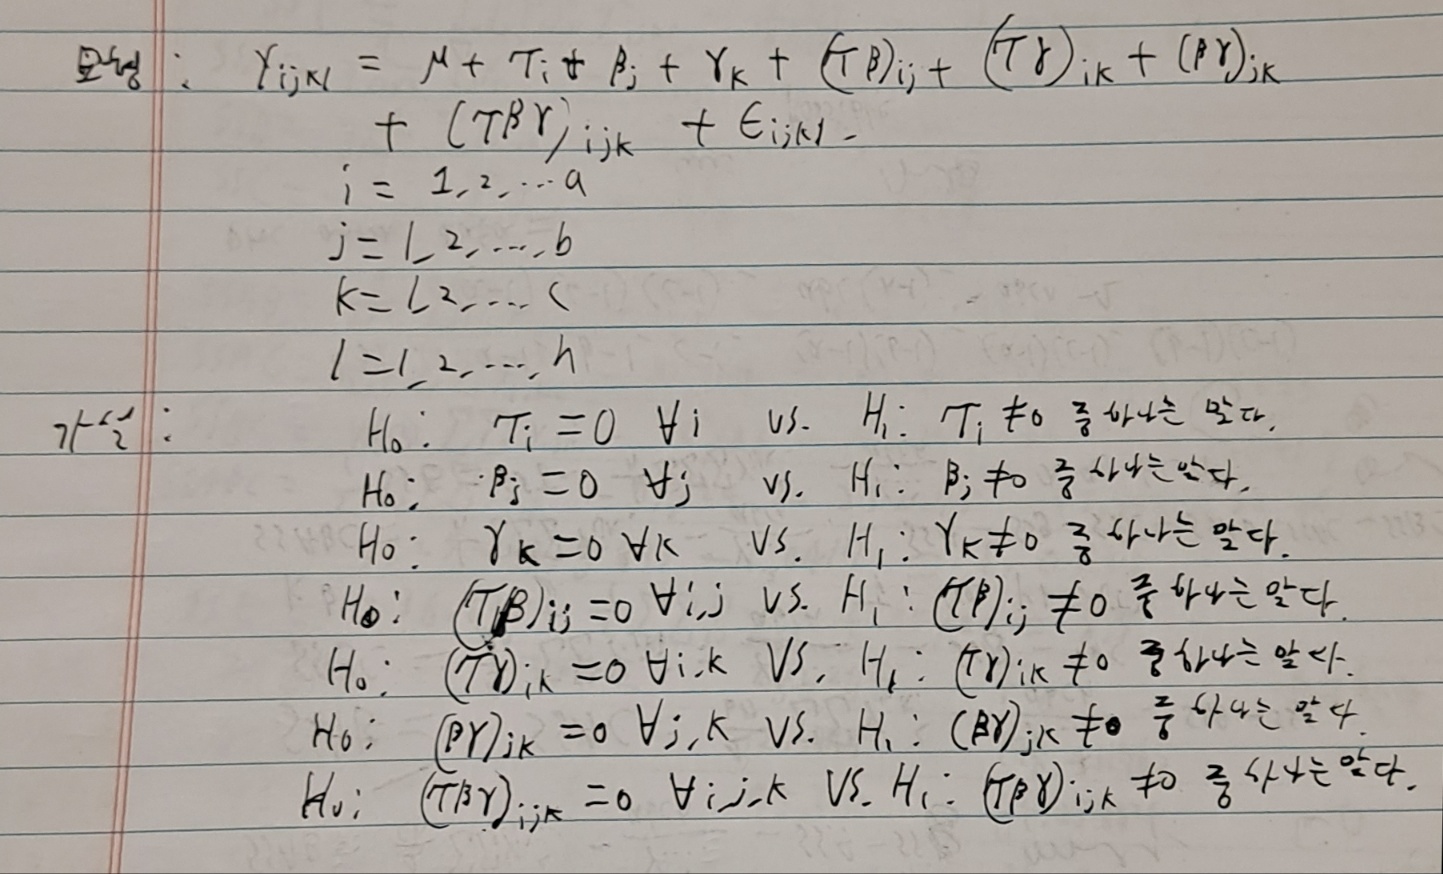 모형 : Yijkl = μ + τi + βj + γk + (τβ)ij + (τγ)ik + (βγ)jk
+ (τβγ)ijk + ϵijkl.
i = 1, 2, ... a
j = 1, 2, ..., b
k = 1, 2, ... c
l = 1, 2, ..., n
가설 : H0 : τi = 0 ∀i vs. H1 : τi ≠ 0 중 하나는 맞다.
H0 : βj = 0 ∀j vs. H1 : βj ≠ 0 중 하나는 맞다.
H0 : γk = 0 ∀k vs. H1 : γk ≠ 0 중 하나는 맞다.
H0 : (τβ)ij = 0 ∀i,j vs. H1 : (τβ)ij ≠ 0 중 하나는 맞다.
H0 : (τγ)ik = 0 ∀i,k vs. H1 : (τγ)ik ≠ 0 중 하나는 맞다.
H0 : (βγ)jk = 0 ∀j,k vs. H1 : (βγ)jk ≠ 0 중 하나는 맞다.
H0 : (τβγ)ijk = 0 ∀i,j,k vs. H1 : (τβγ)ijk ≠ 0 중 하나는 맞다.